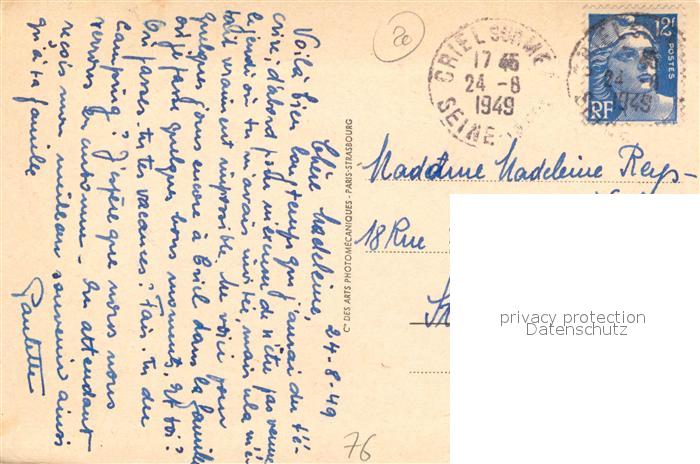 Chère Madeleine, 24-8-49
Voilà bien longtemps que j'aurai du t'é-
crire, d'abord pour m'excuser de n'être pas venue
le jeudi où tu m'avais invitée, mais cela m'é-
tait vraiment impossible. Me voici pour
quelques jours encore à Criel dans la famille
où je passe quelques bons moments. Et toi?
Où passes-tu tes vacances? Fais-tu du
camping? J'espère que nous nous
reverrons en automne - En attendant
reçois mon meilleur souvenir ainsi
qu'à ta famille
Paulette
20
76
Cie DES ARTS PHOTOMÉCANIQUES - PARIS-STRASBOURG
CRIEL SUR MER
17 45
24 - 8
1949
SEINE
12f
POSTES
RF
24
1949
Madame Madeleine Reys-
18 Rue
privacy protection
Datenschutz